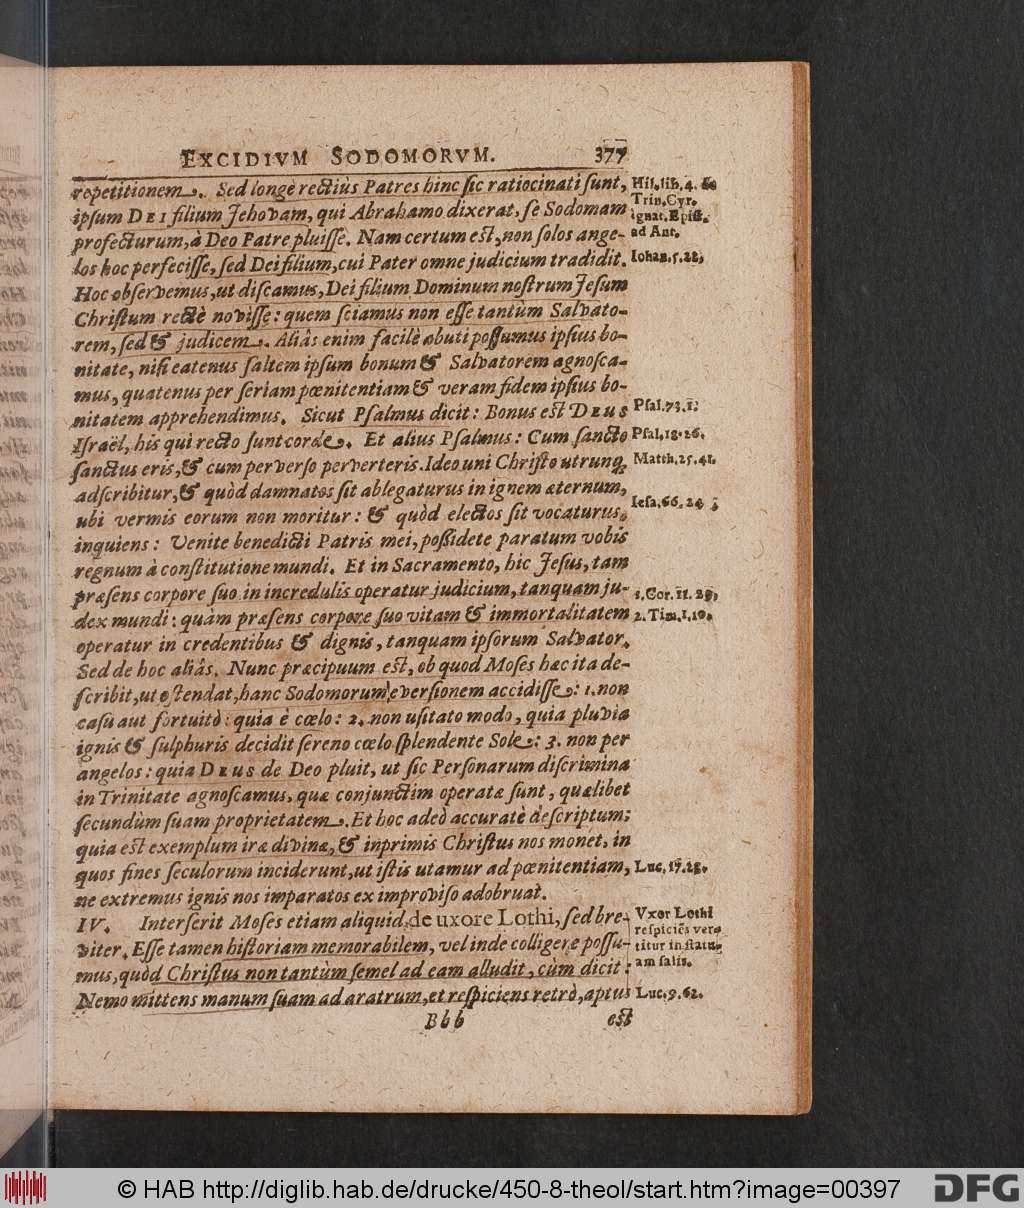 EXCIDIVM SODOMORVM. 377
repetitionem. Sed longè rectiùs Patres hinc sic ratiocinati sunt,
ipsum DEI filium Jehovam, qui Abrahamo dixerat, se Sodomam
profecturum, à Deo Patre pluisse. Nam certum est, non solos ange-
los hoc perfecisse, sed Dei filium, cui Pater omne judicium tradidit.
Hoc observemus, ut discamus, Dei filium Dominum nostrum Jesum
Christum rectè novisse: quem sciamus non esse tantùm Salvato-
rem, sed & judicem. Aliâs enim facilè abuti possumus ipsius bo-
nitate, nisi eatenus saltem ipsum bonum & Salvatorem agnosca-
mus, quatenus per seriam pœnitentiam & veram fidem ipsius bo-
nitatem apprehendimus. Sicut Psalmus dicit: Bonus est DEUS
Israël, his qui recto sunt corde. Et alius Psalmus: Cum sancto
sanctus eris, & cum perverso perverteris. Ideo uni Christo utrunq;
adscribitur, & quòd damnatos sit ablegaturus in ignem æternum,
ubi vermis eorum non moritur: & quòd electos sit vocaturus,
inquiens: Venite benedicti Patris mei, possidete paratum vobis
regnum à constitutione mundi. Et in Sacramento, hic Jesus, tam
præsens corpore suo in incredulis operatur judicium, tanquam ju-
dex mundi: quàm præsens corpore suo vitam & immortalitatem
operatur in credentibus & dignis, tanquam ipsorum Salvator.
Sed de hoc aliâs. Nunc præcipuum est, ob quod Moses hæc ita de-
scribit, ut ostendat, hanc Sodomorum eversionem accidisse: 1. non
casu aut fortuitò: quia è cœlo: 2. non usitato modo, quia pluvia
ignis & sulphuris decidit sereno cœlo splendente Sole: 3. non per
angelos: quia DEUS de Deo pluit, ut sic Personarum discrimina
in Trinitate agnoscamus, quæ conjunctim operatæ sunt, quælibet
secundùm suam proprietatem. Et hoc adeò accuratè descriptum;
quia est exemplum iræ divinæ, & inprimis Christus nos monet, in
quos fines seculorum inciderunt, ut istis utamur ad pœnitentiam,
ne extremus ignis nos imparatos ex improviso adobruat.
IV. Interserit Moses etiam aliquid de uxore Lothi, sed bre-
viter. Esse tamen historiam memorabilem, vel inde colligere possu-
mus, quòd Christus non tantùm semel ad eam alludit, cùm dicit:
Nemo mittens manum suam ad aratrum, et respiciens retrò, aptus
Bbb est
Hil. lib. 4. de
Trin. Cyr.
Ignat. Epist.
ad Ant.
Iohan. 5. 22,
Psal. 73. 1.
Psal. 18. 26.
Matth. 25. 41.
Iesa. 66. 24
1. Cor. 11. 29,
2. Tim. 1. 10.
Luc. 17. 28.
Vxor Lothi
respiciēs ver-
titur in statu-
am salis.
Luc. 9. 62.
© HAB http://diglib.hab.de/drucke/450-8-theol/start.htm?image=00397
DFG